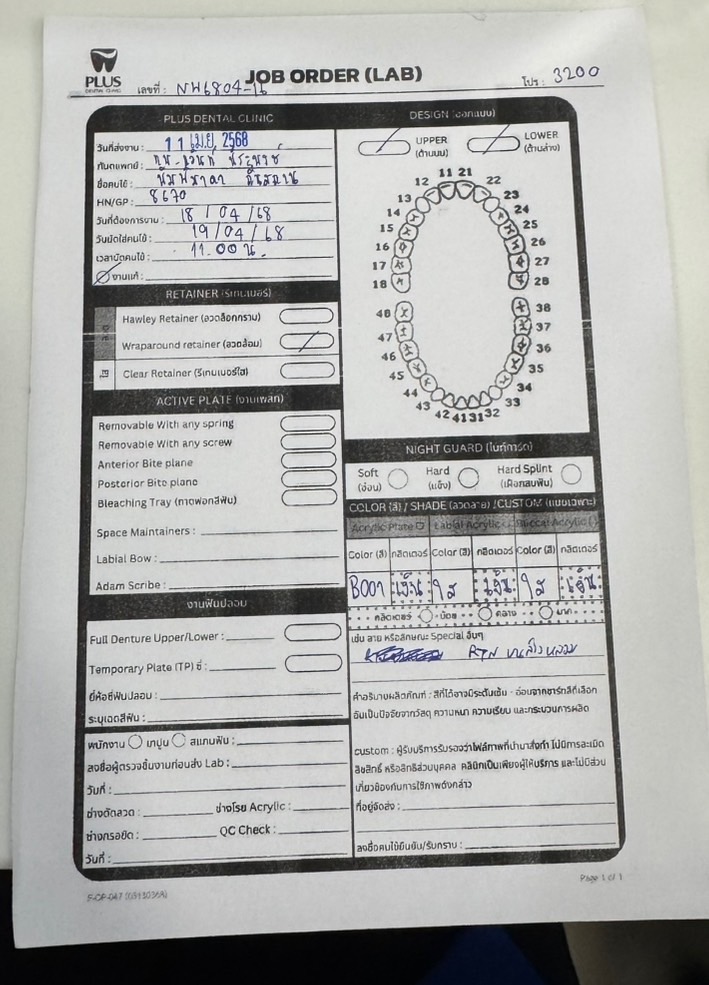 PLUS
DENTAL CLINIC
JOB ORDER (LAB)
เลขที่ : NW6804-16
โปร : 3200
PLUS DENTAL CLINIC
วันที่ส่งงาน : 11 เม.ย. 2568
ทันตแพทย์ :
ชื่อคนไข้ :
HN/GP : 8670
วันที่ต้องการงาน : 18 / 04 / 68
วันนัดใส่คนไข้ : 19 / 04 / 68
เวลานัดคนไข้ : 11.00 น.
งานแก้ :
RETAINER (รีเทนเนอร์)
Hawley Retainer (ลวดล็อกกราม)
Wraparound retainer (ลวดล้อม)
Clear Retainer (รีเทนเนอร์ใส)
ACTIVE PLATE (งานเพลท)
Removable With any spring
Removable With any screw
Anterior Bite plane
Posterior Bite plane
Bleaching Tray (ถาดฟอกสีฟัน)
Space Maintainers :
Labial Bow :
Adam Scribe :
งานฟันปลอม
Full Denture Upper/Lower :
Temporary Plate (TP) ซี่ :
ยี่ห้อซี่ฟันปลอม :
ระบุเฉดสีฟัน :
พนักงาน เทปูน สแกนฟัน :
ลงชื่อผู้ตรวจชิ้นงานก่อนส่ง Lab :
วันที่ :
ช่างดัดลวด : ช่างโรย Acrylic :
ช่างกรอขัด : QC Check :
วันที่ :
DESIGN (ออกแบบ)
UPPER
(ด้านบน)
LOWER
(ด้านล่าง)
11 21
12 22
13 23
14 24
15 25
16 26
17 27
18 28
48 38
47 37
46 36
45 35
44 34
43 33
42 41 31 32
NIGHT GUARD (ไนท์การ์ด)
Soft
(อ่อน)
Hard
(แข็ง)
Hard Splint
(เฝือกสบฟัน)
COLOR (สี) / SHADE (ลวดลาย) / CUSTOM (แบบเฉพาะ)
Acrylic Plate Labial Acrylic Buccal Acrylic
Color (สี) กลิตเตอร์ Color (สี) กลิตเตอร์ Color (สี) กลิตเตอร์
B001 เงิน ใส เงิน ใส เงิน
กลิตเตอร์ น้อย กลาง มาก
เช่น ลาย หรือลักษณะ Special อื่นๆ
RTN
คำอธิบายผลิตภัณฑ์ : สีที่ได้อาจมีระดับเข้ม - อ่อนจากชาร์ทสีที่เลือก
อันเป็นปัจจัยจากวัสดุ ความหนา ความเรียบ และกระบวนการผลิต
custom : ผู้รับบริการรับรองว่าไฟล์ภาพที่นำมาสั่งทำ ไม่มีการละเมิด
ลิขสิทธิ์ หรือสิทธิส่วนบุคคล คลินิกเป็นเพียงผู้ให้บริการ และไม่มีส่วน
เกี่ยวข้องกับการใช้ภาพดังกล่าว
ที่อยู่จัดส่ง :
ลงชื่อคนไข้ยืนยัน/รับทราบ :
Page 1 of 1